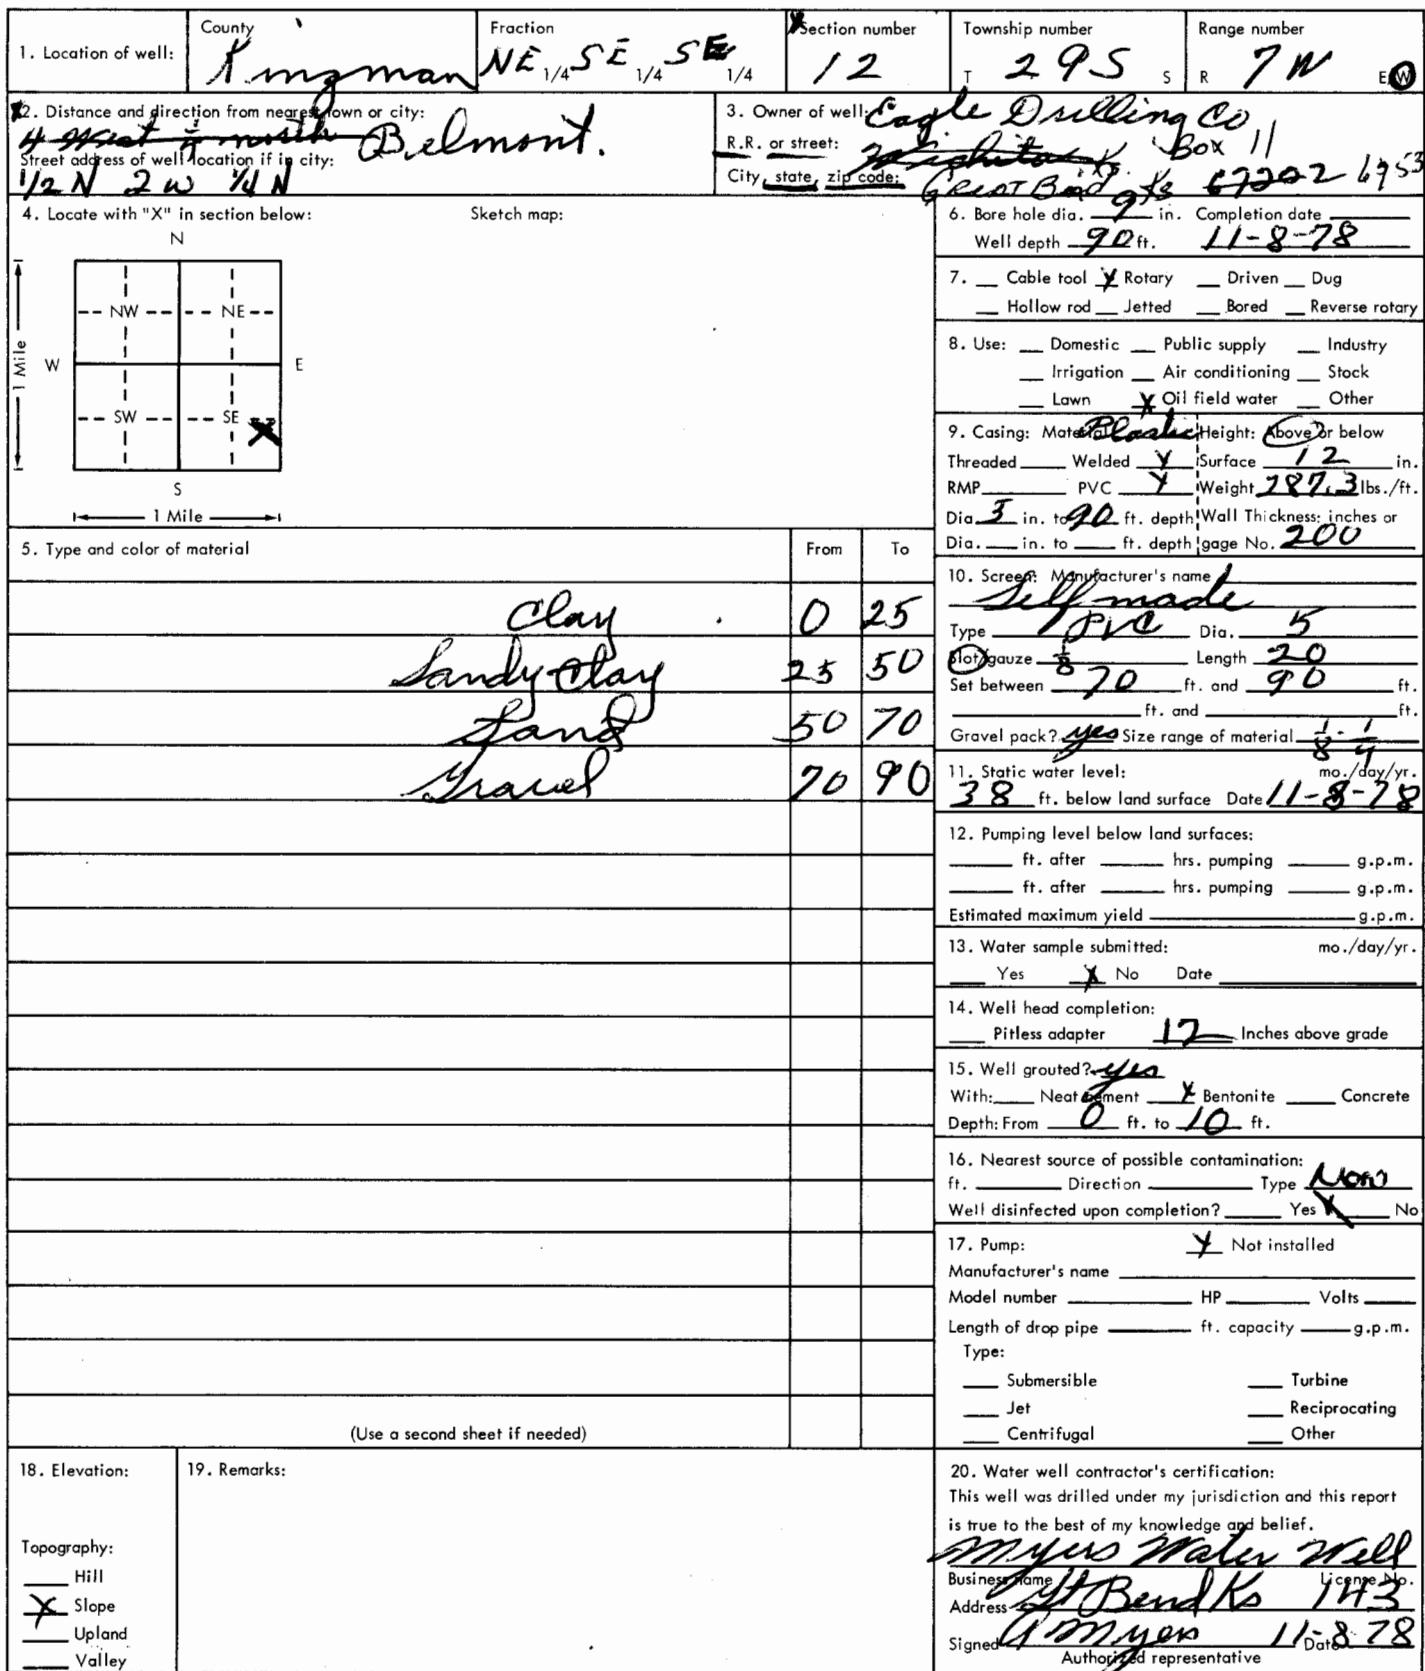 1. Location of well: County Kingman Fraction NE 1/4 SE 1/4 SE 1/4 Section number 12 Township number T 29S S Range number R 7W E W
2. Distance and direction from nearest town or city: 4 West 1/4 north Belmont.
Street address of well location if in city:
1/2 N 2 W 1/4 N
3. Owner of well: Eagle Drilling Co
R.R. or street: Box 11
City, state, zip code: Great Bend Ks 67202
4. Locate with "X" in section below: Sketch map:
N
NW NE
W E
1 Mile
SW SE X
S
1 Mile
5. Type and color of material From To
Clay 0 25
Sandy Clay 25 50
Sand 50 70
Gravel 70 90
(Use a second sheet if needed)
6. Bore hole dia. 9 in. Completion date
Well depth 90 ft. 11-8-78
7. Cable tool X Rotary Driven Dug
Hollow rod Jetted Bored Reverse rotary
8. Use: Domestic Public supply Industry
Irrigation Air conditioning Stock
Lawn X Oil field water Other
9. Casing: Material Plastic Height: Above or below
Threaded Welded X Surface 12 in.
RMP PVC X Weight 287.3 lbs./ft.
Dia. 5 in. to 90 ft. depth Wall Thickness: inches or
Dia. in. to ft. depth gage No. 200
10. Screen: Manufacturer's name
Self made
Type PVC Dia. 5
Slot/gauze 1/8 Length 20
Set between 70 ft. and 90 ft.
ft. and ft.
Gravel pack? yes Size range of material 1/8 - 1/4
11. Static water level: mo./day/yr.
38 ft. below land surface Date 11-8-78
12. Pumping level below land surfaces:
ft. after hrs. pumping g.p.m.
ft. after hrs. pumping g.p.m.
Estimated maximum yield g.p.m.
13. Water sample submitted: mo./day/yr.
Yes X No Date
14. Well head completion:
Pitless adapter 12 Inches above grade
15. Well grouted? yes
With: Neat cement X Bentonite Concrete
Depth: From 0 ft. to 10 ft.
16. Nearest source of possible contamination:
ft. Direction Type None
Well disinfected upon completion? Yes X No
17. Pump: X Not installed
Manufacturer's name
Model number HP Volts
Length of drop pipe ft. capacity g.p.m.
Type:
Submersible Turbine
Jet Reciprocating
Centrifugal Other
18. Elevation:
Topography:
Hill
X Slope
Upland
Valley
19. Remarks:
20. Water well contractor's certification:
This well was drilled under my jurisdiction and this report
is true to the best of my knowledge and belief.
Myers Water Well
Business name License No.
Address Gt Bend Ks 143
Signed A Myers Date 11-8-78
Authorized representative